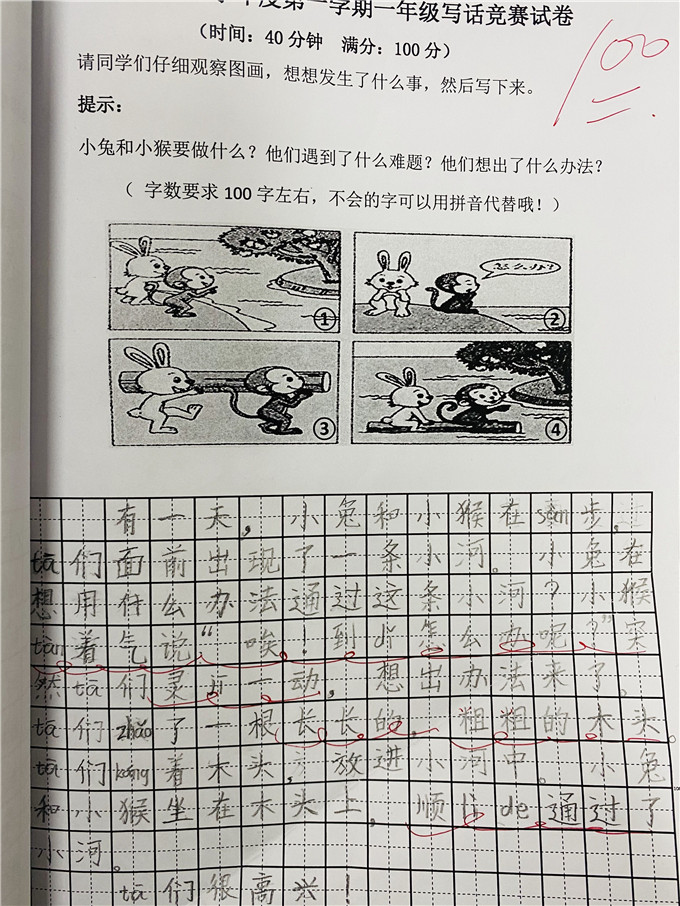 年度第一学期一年级写话竞赛试卷
（时间：40分钟 满分：100分）
100
请同学们仔细观察图画，想想发生了什么事，然后写下来。
提示：
小兔和小猴要做什么？他们遇到了什么难题？他们想出了什么办法？
（ 字数要求100字左右，不会的字可以用拼音代替哦！）
①
怎么办？
②
③
④
有一天，小兔和小猴在sàn步，
tā们面前出现了一条小河。小兔在
想用什么办法通过这条小河？小猴
tàn着气说“唉！到dǐ怎么办呢？”突
然tā们灵jī一动，想出办法来了。
tā们zhǎo了一根长长的 粗粗的木头。
tā们káng着木头，放进小河中。小兔
和小猴坐在木头上，顺lì de通过了
小河。
tā们很高兴！